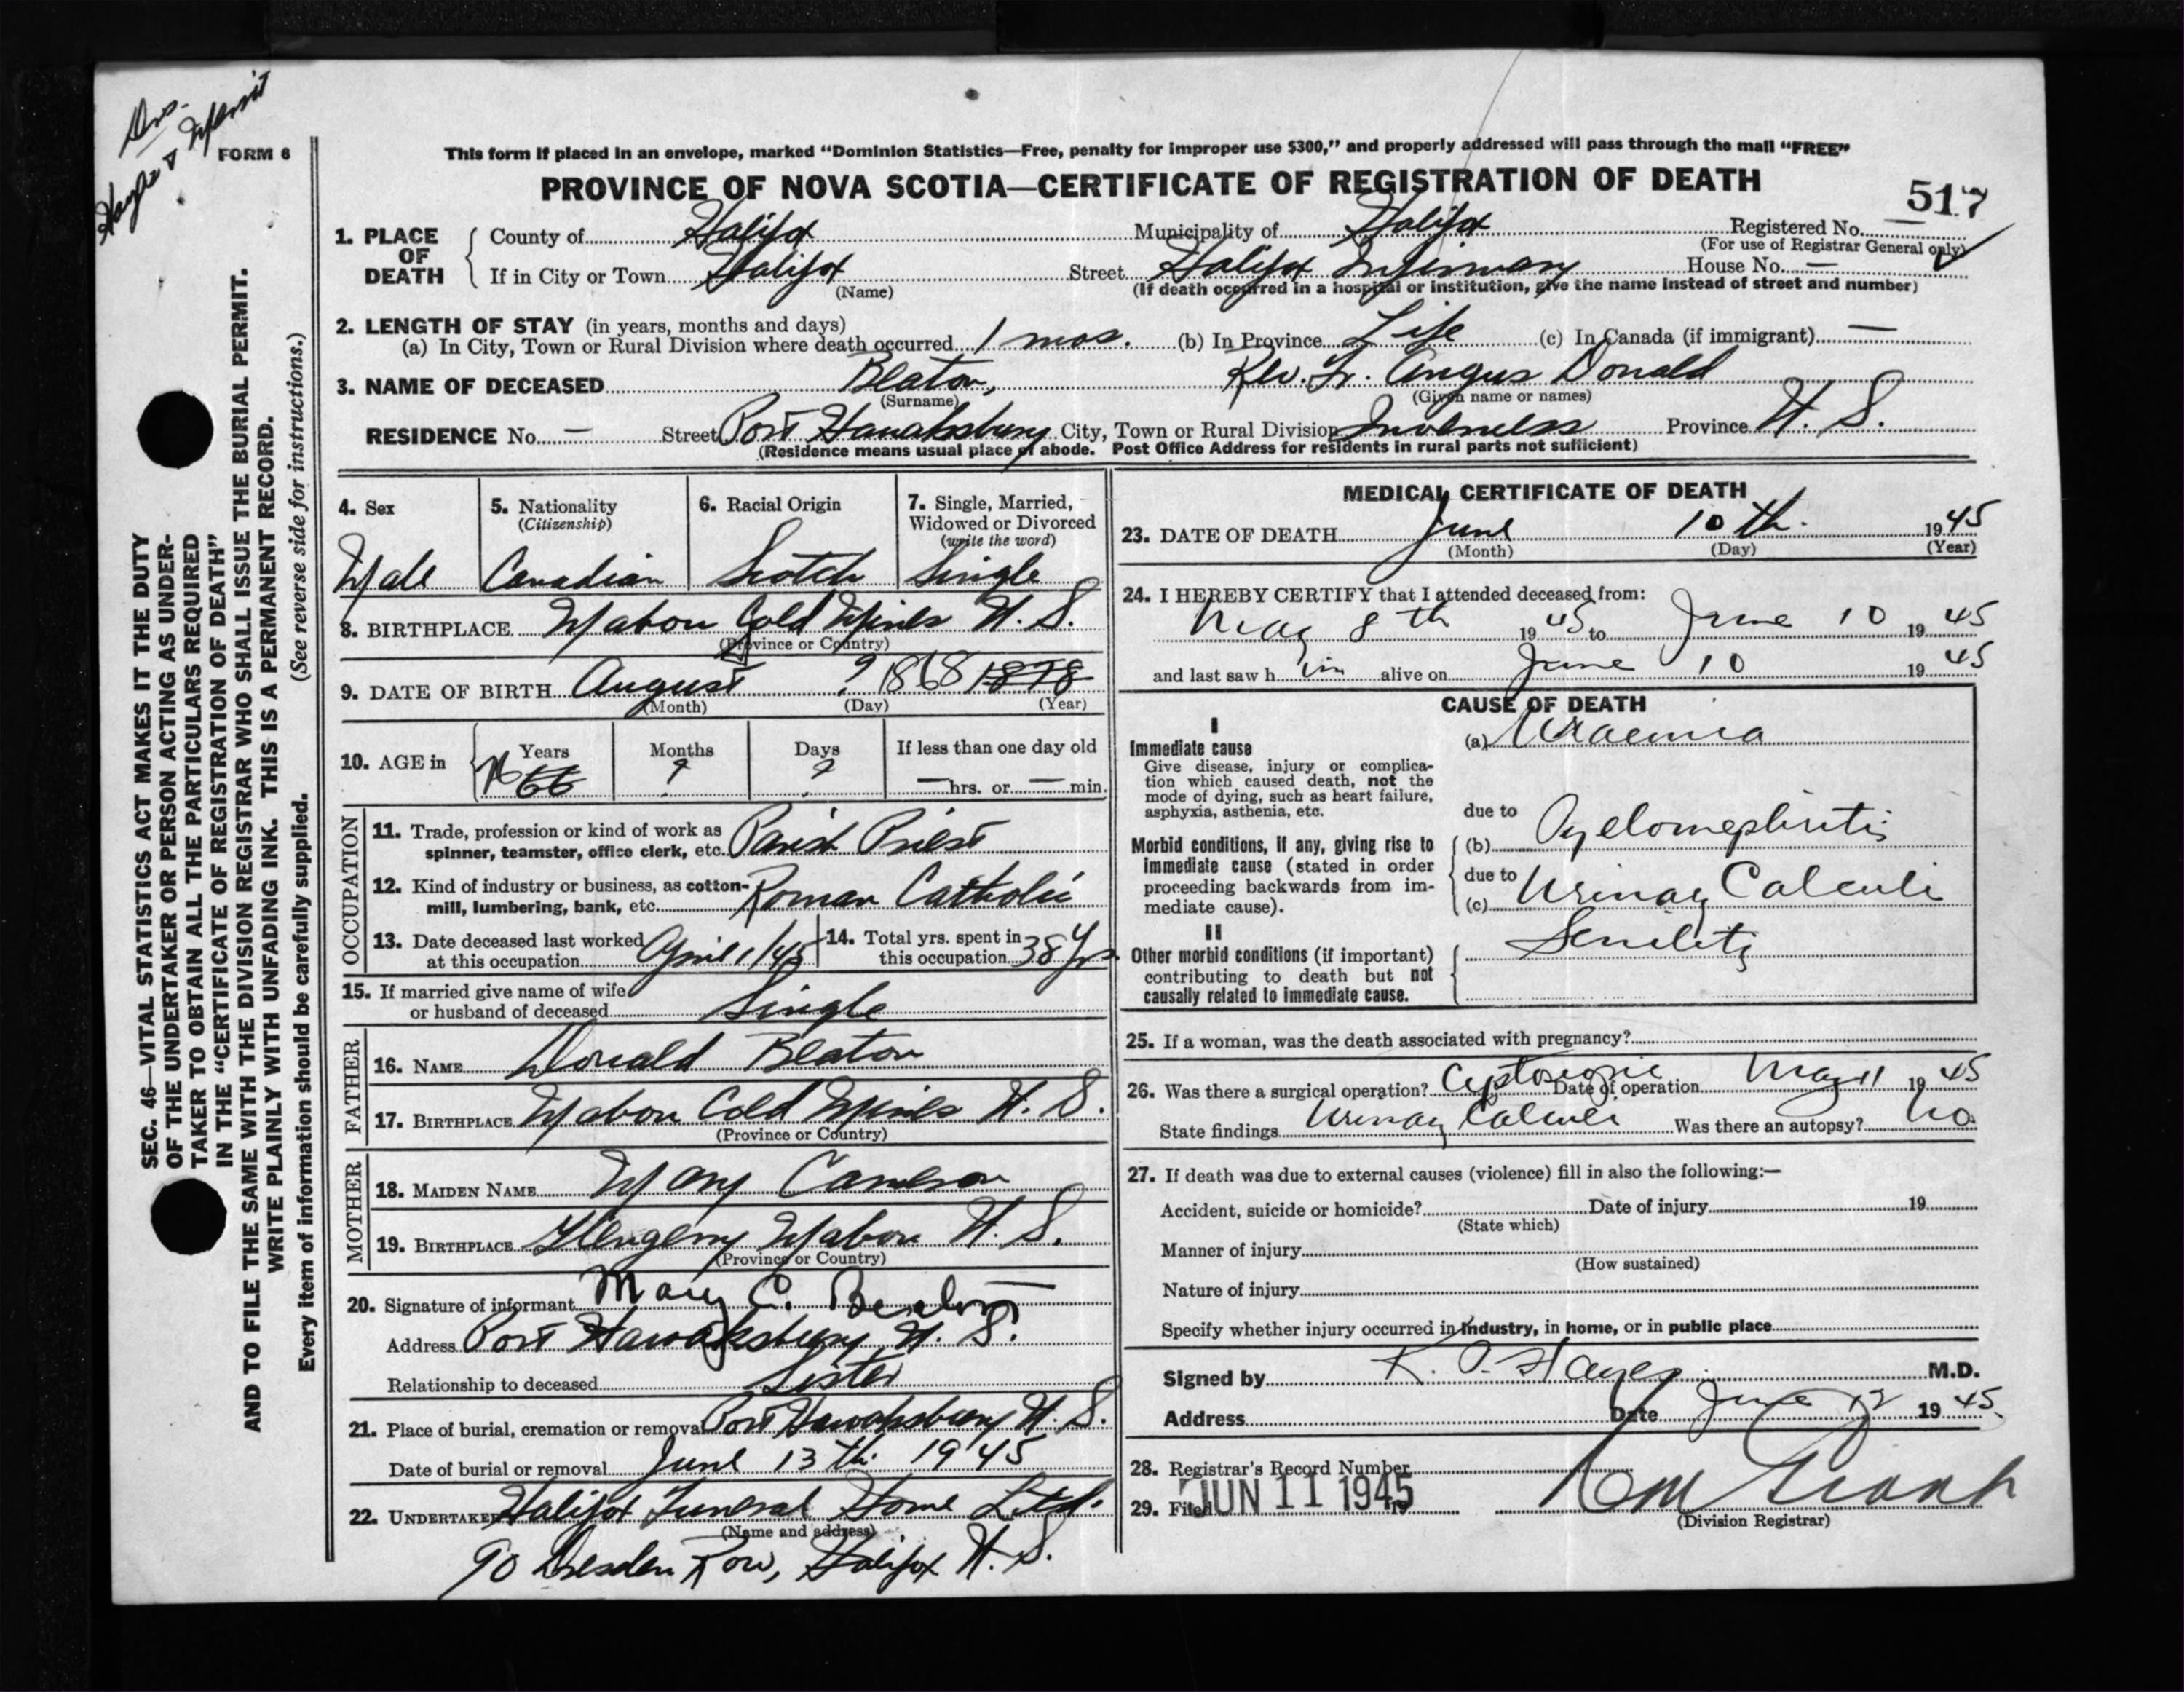 Drs.
Hayes & Morris
FORM 6
This form if placed in an envelope, marked “Dominion Statistics—Free, penalty for improper use $300,” and properly addressed will pass through the mail “FREE”
PROVINCE OF NOVA SCOTIA—CERTIFICATE OF REGISTRATION OF DEATH
517
1. PLACE OF DEATH County of Halifax Municipality of Halifax Registered No.
(For use of Registrar General only)
If in City or Town Halifax Street Halifax Infirmary House No. —
(Name) (If death occurred in a hospital or institution, give the name instead of street and number)
2. LENGTH OF STAY (in years, months and days)
(a) In City, Town or Rural Division where death occurred 1 mos. (b) In Province Life (c) In Canada (if immigrant) —
3. NAME OF DECEASED Beaton, Rev. Fr. Angus Donald
(Surname) (Given name or names)
RESIDENCE No. — Street Port Hawksbury City, Town or Rural Division Inverness Province N. S.
(Residence means usual place of abode. Post Office Address for residents in rural parts not sufficient)
4. Sex 5. Nationality (Citizenship) 6. Racial Origin 7. Single, Married, Widowed or Divorced (write the word)
Male Canadian Scotch Single
8. BIRTHPLACE Mabou Cold Mines N. S.
(Province or Country)
9. DATE OF BIRTH August ? 1868 1878
(Month) (Day) (Year)
10. AGE in Years Months Days If less than one day old
76 66 ? ? — hrs. or — min.
OCCUPATION
11. Trade, profession or kind of work as
spinner, teamster, office clerk, etc. Parish Priest
12. Kind of industry or business, as cotton-
mill, lumbering, bank, etc. Roman Catholic
13. Date deceased last worked at this occupation April 1/45 14. Total yrs. spent in this occupation 38 Yrs
15. If married give name of wife
or husband of deceased Single
FATHER
16. NAME Donald Beaton
17. BIRTHPLACE Mabou Cold Mines N. S.
(Province or Country)
MOTHER
18. MAIDEN NAME Mary Cameron
19. BIRTHPLACE Glengerry Mabou N. S.
(Province or Country)
20. Signature of informant Mary C. Beaton
Address Port Hawaksbury N. S.
Relationship to deceased Sister
21. Place of burial, cremation or removal Port Hawaksbury N. S.
Date of burial or removal June 13th 1945
22. UNDERTAKER Halifax Funeral Home Ltd.
(Name and address)
90 Dresden Row, Halifax N. S.
MEDICAL CERTIFICATE OF DEATH
23. DATE OF DEATH June 10th. 1945
(Month) (Day) (Year)
24. I HEREBY CERTIFY that I attended deceased from:
May 8th 1945 to June 10 1945
and last saw h im alive on June 10 1945
CAUSE OF DEATH
I
Immediate cause (a) Uraemia
Give disease, injury or complica-
tion which caused death, not the
mode of dying, such as heart failure,
asphyxia, asthenia, etc.
due to
Morbid conditions, if any, giving rise to (b) Pyelonephritis
immediate cause (stated in order
proceeding backwards from im- due to
mediate cause). (c) Urinary Calculi
II
Other morbid conditions (if important) Senility
contributing to death but not
causally related to immediate cause.
25. If a woman, was the death associated with pregnancy?
26. Was there a surgical operation? Date of operation May 11 1945
State findings Urinary Calculi Was there an autopsy? No
27. If death was due to external causes (violence) fill in also the following:—
Accident, suicide or homicide? Date of injury 19
(State which)
Manner of injury
(How sustained)
Nature of injury
Specify whether injury occurred in industry, in home, or in public place
Signed by K. A. Hayes M.D.
Address Date June 12 1945
28. Registrar's Record Number
29. Filed JUN 11 1945 19
(Division Registrar)
SEC. 46—VITAL STATISTICS ACT MAKES IT THE DUTY
OF THE UNDERTAKER OR PERSON ACTING AS UNDER-
TAKER TO OBTAIN ALL THE PARTICULARS REQUIRED
IN THE “CERTIFICATE OF REGISTRATION OF DEATH”
AND TO FILE THE SAME WITH THE DIVISION REGISTRAR WHO SHALL ISSUE THE BURIAL PERMIT.
WRITE PLAINLY WITH UNFADING INK. THIS IS A PERMANENT RECORD.
Every item of information should be carefully supplied. (See reverse side for instructions.)